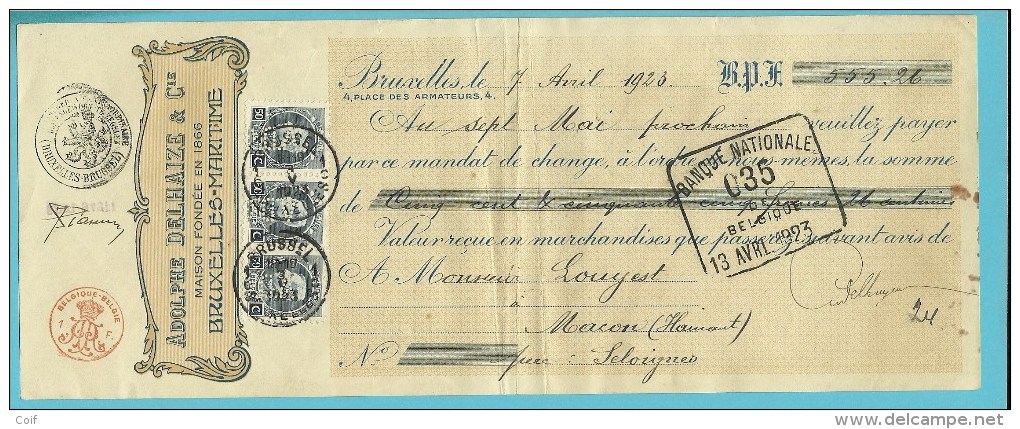 ADOLPHE DELHAIZE & CIE
MAISON FONDÉE EN 1866
BRUXELLES-MARITIME
BELGIQUE-BELGIË
Bruxelles, le 7 Avril 1923 B.P.F 555.26
4, PLACE DES ARMATEURS, 4.
Au sept Mai prochain veuillez payer
par ce mandat de change, à l'ordre nous-mêmes, la somme
de Cinq cent & cinquante cinq francs 26 centimes
Valeur reçue en marchandises que passerez suivant avis de
BANQUE NATIONALE
035
DE
BELGIQUE
13 AVRL 1923
A Monsieur Louyest
à
Macon (Hainaut)
24
No par : Seloignes
Coif
delcampe.net